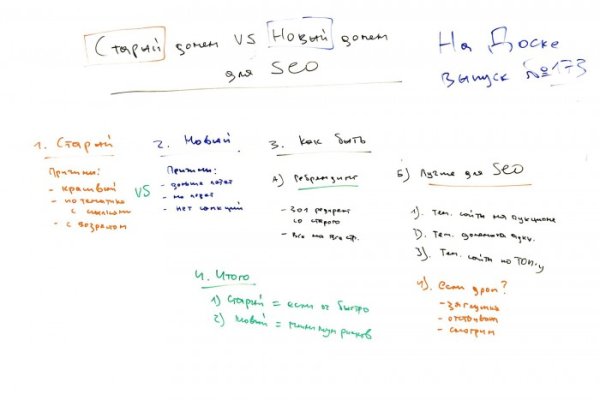 Старый домен VS Новый домен
для SEO
На Доске
выпуск №173
1. Старый
Причины:
- красивый
- по тематике
с ссылками
- с возрастом
VS
2. Новый
Причины:
- дольше
- не
- нет санкций
3. Как быть
А) Ребрендинг
- 301 редирект
со старого
- Все на все стр.
Б) Лучше для SEO
1). Тем. сайты на аукционе
2). Тем. домена аукц.
3). Тем. сайты по ТОП-у
4). если дроп?
- загнать
- отстоять
- смотрим
4. Итого
1) Старый = если оч быстро
2) Новый = минимум рисков